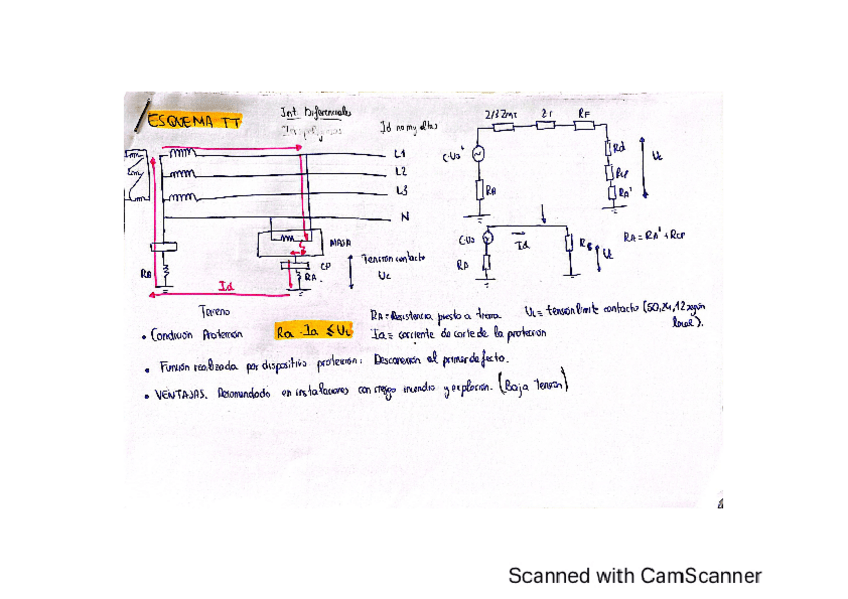 ESQUEMA TT
Int. Diferenciales
Id no muy altas
L1
L2
L3
N
MASA
CP
RA
RB
Id
Tensión contacto
Uc
Terreno
2/3 Zmt
2r
RF
C·Uo
RB
Rd
Rcp
RA'
Uc
C·Uo
Id
Uc
RA = RA' + Rcp
RA = Resistencia puesta a tierra. UL = tensión límite contacto (50, 24, 12 según
local).
• Condición Protección Ra · Ia ≤ UL Ia = corriente de corte de la protección
• Función realizada por dispositivo protección: Desconexión al primer defecto.
• VENTAJAS. Recomendado en instalaciones con riesgo incendio y explosión. (Baja Tensión)
Scanned with CamScanner